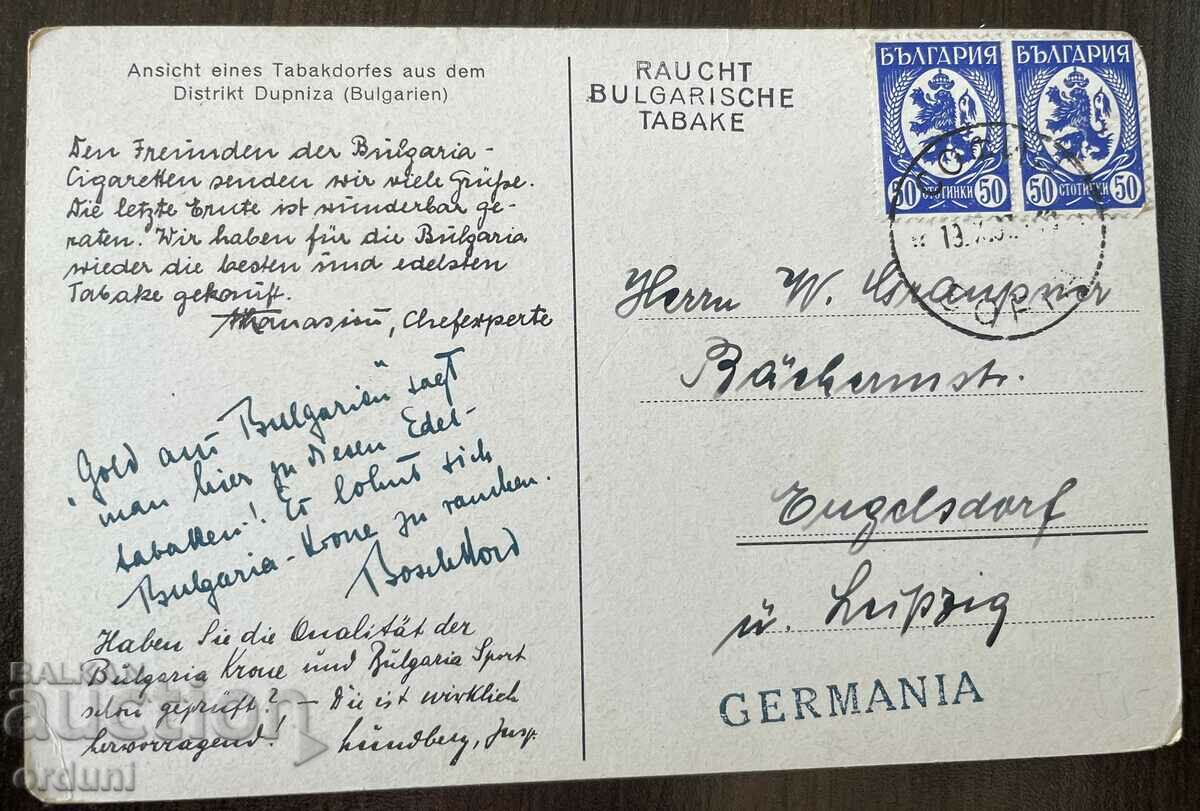 Ansicht eines Tabakdorfes aus dem
Distrikt Dupniza (Bulgarien)
Den Freunden der Bulgaria-
Cigaretten senden wir viele Grüße.
Die letzte Ernte ist wunderbar ge-
raten. Wir haben für die Bulgaria
wieder die besten und edelsten
Tabake gekauft.
Athanasiou, Chefexperte
"Gold aus Bulgarien" sagt
man hier zu diesen Edel-
tabaken! Es lohnt sich
Bulgaria-Krone zu rauchen.
Haben Sie die Qualität der
Bulgaria Krone und Bulgaria Sport
schon geprüft? – Die ist wirklich
hervorragend! Lundberg, Insp.
RAUCHT
BULGARISCHE
TABAKE
БЪЛГАРИЯ БЪЛГАРИЯ
50 СТОТИНКИ 50 50 СТОТИНКИ 50
СОФИЯ
SOFIA
Herrn W. Graupner
Bäckermstr.
Engelsdorf
ü. Leipzig
GERMANIA
BALKAN
auction
orduni